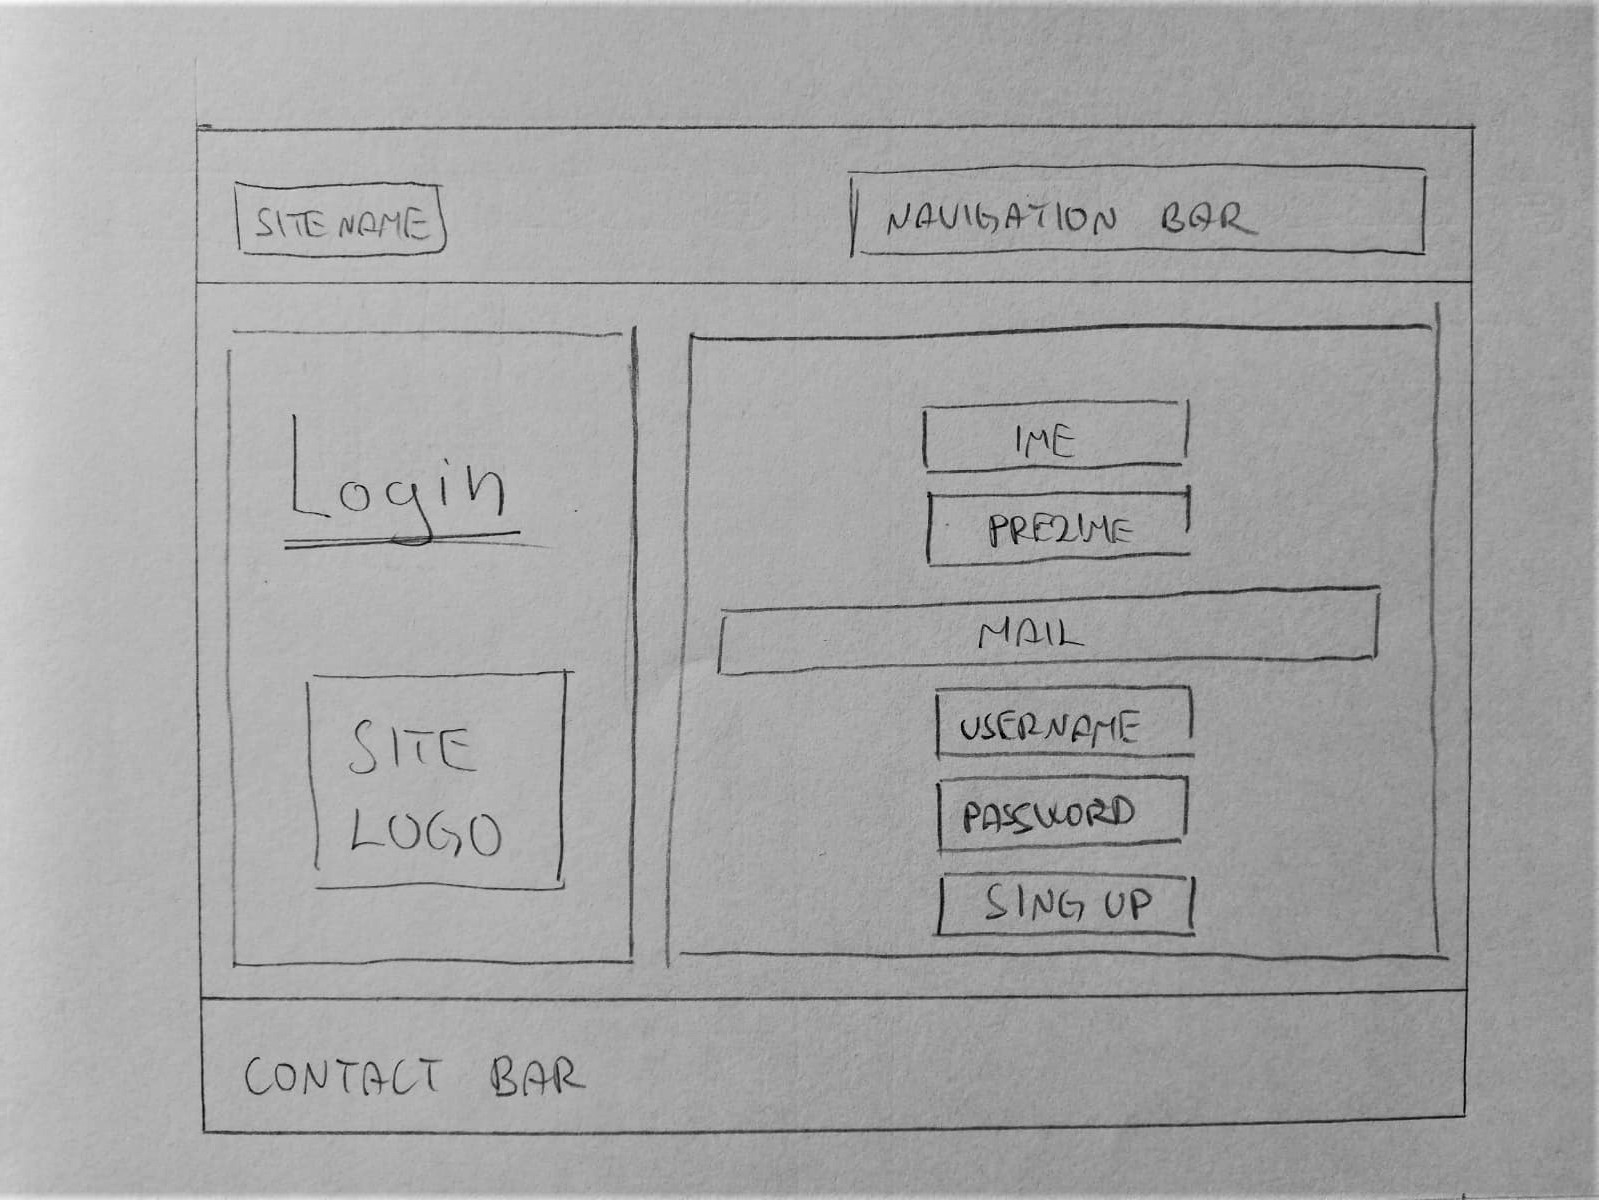 SITE NAME
NAVIGATION BAR
Login
SITE
LOGO
IME
PREZIME
MAIL
USERNAME
PASSWORD
SING UP
CONTACT BAR